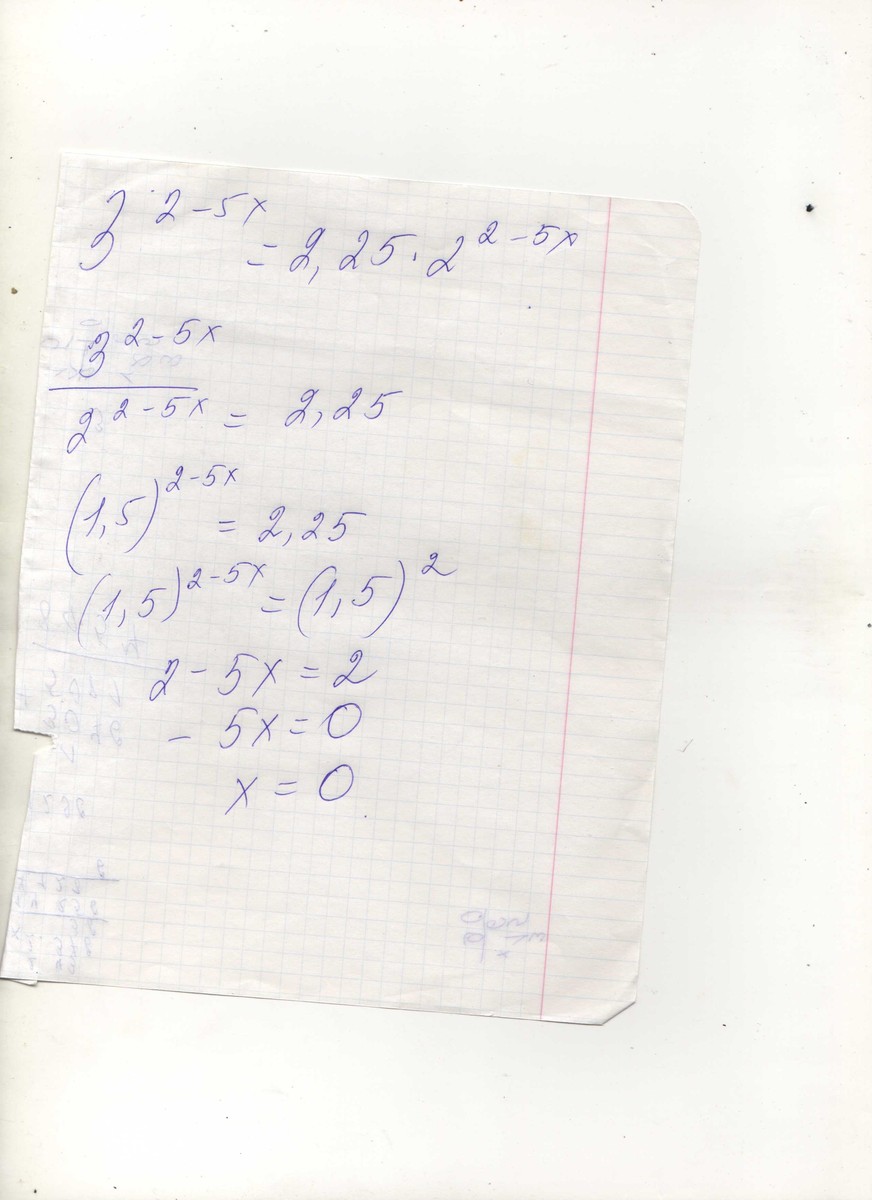 3^{2-5x} = 2,25 · 2^{2-5x}
3^{2-5x} / 2^{2-5x} = 2,25
(1,5)^{2-5x} = 2,25
(1,5)^{2-5x} = (1,5)^2
2-5x=2
-5x=0
x=0